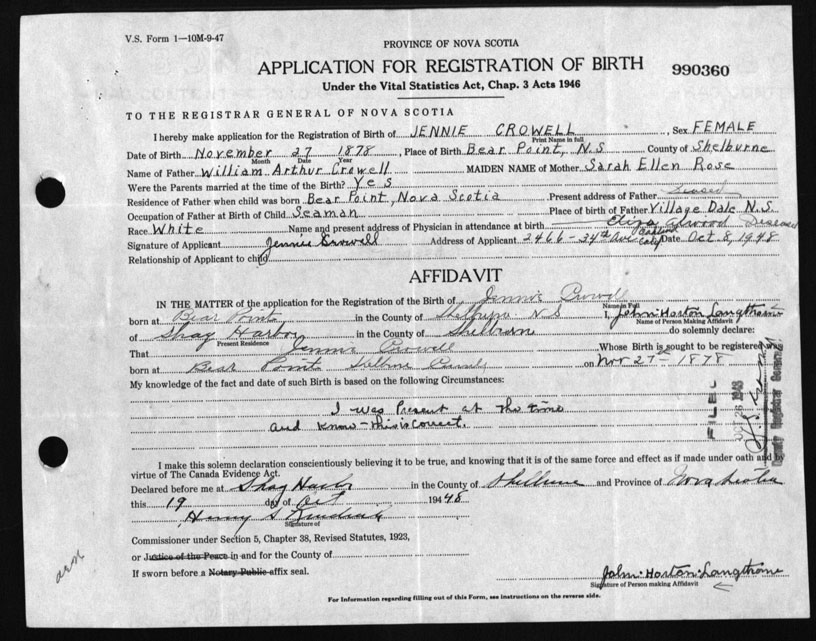 V.S. Form 1—10M-9-47
PROVINCE OF NOVA SCOTIA
APPLICATION FOR REGISTRATION OF BIRTH
990360
Under the Vital Statistics Act, Chap. 3 Acts 1946
TO THE REGISTRAR GENERAL OF NOVA SCOTIA
I hereby make application for the Registration of Birth of JENNIE CROWELL, Sex FEMALE
Print Name in full
Date of Birth November 27 1878, Place of Birth Bear Point, N.S County of Shelburne
Month Date Year
Name of Father William Arthur Crowell MAIDEN NAME of Mother Sarah Ellen Rose
Were the Parents married at the time of the Birth? Yes
Residence of Father when child was born Bear Point, Nova Scotia Present address of Father
Occupation of Father at Birth of Child Seaman Place of birth of Father Village Dale N.S.
Race White Name and present address of Physician in attendance at birth Eliza Deseased
Signature of Applicant Jennie Crowell Address of Applicant 2466-34th Ave Oakland Calif Date Oct 8, 1948
Relationship of Applicant to child
AFFIDAVIT
IN THE MATTER of the application for the Registration of the Birth of Jennie Crowell
Name in Full
born at Bear Point in the County of N S I, John Horton Langthorne
Name of Person Making Affidavit
of Shag Harbor in the County of Shelburn do solemnly declare:
Present Residence
That Jennie Crowell Whose Birth is sought to be registered was
born at Bear Point on Nov 27th 1878
My knowledge of the fact and date of such Birth is based on the following Circumstances:
I was Present at the time
and know this is correct.
FILED
1948
County Registrar General
I make this solemn declaration conscientiously believing it to be true, and knowing that it is of the same force and effect as if made under oath and by
virtue of The Canada Evidence Act.
Declared before me at Shag Harbor in the County of Shelburne and Province of Nova Scotia
this 19 day of Oct 1948
Signature of
Commissioner under Section 5, Chapter 38, Revised Statutes, 1923,
or Justice of the Peace in and for the County of
If sworn before a Notary Public affix seal.
John Horton Langthorne
Signature of Person making Affidavit
For Information regarding filling out of this Form, see instructions on the reverse side.